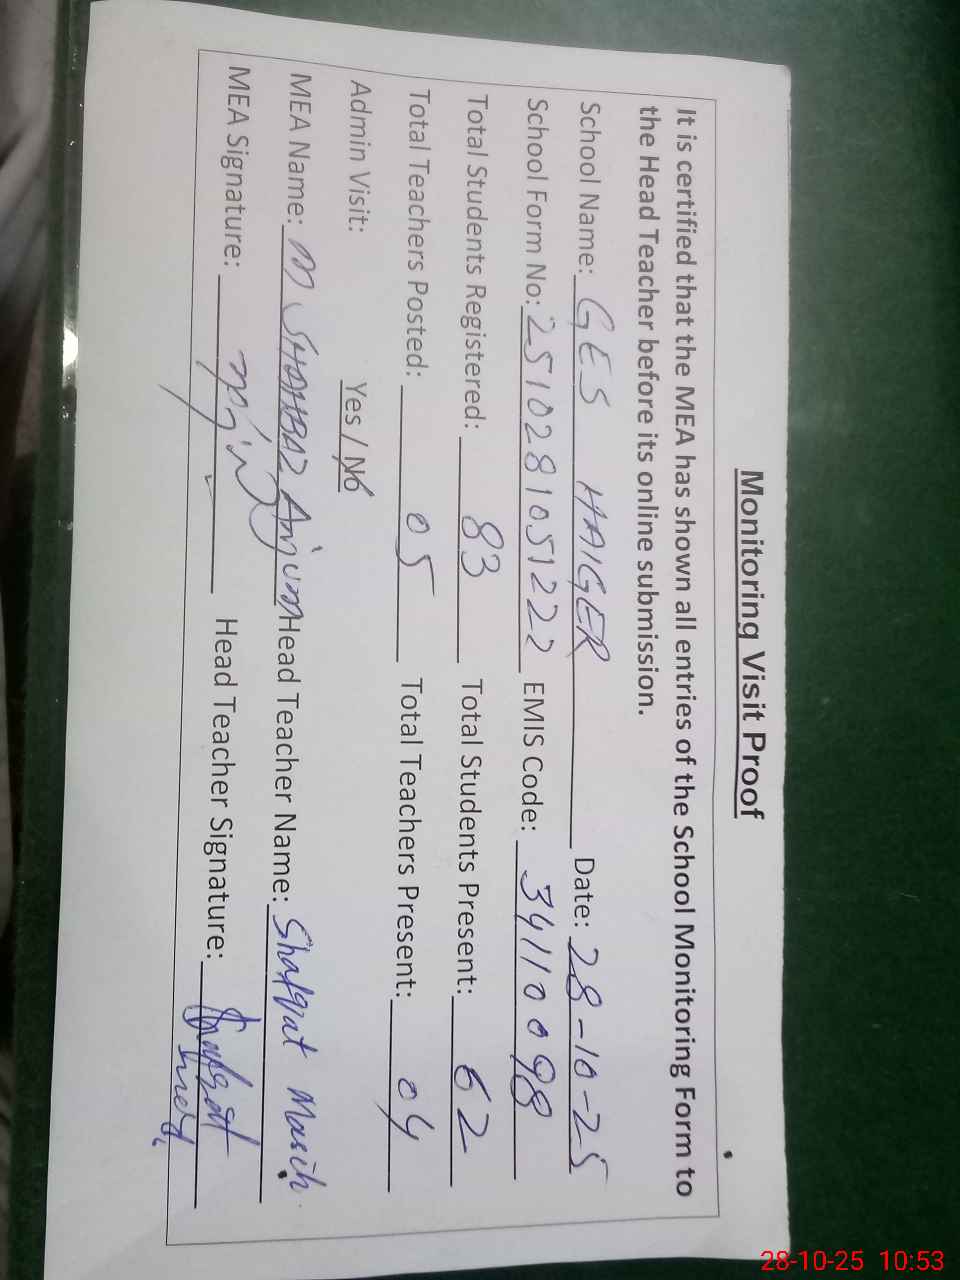 Monitoring Visit Proof
It is certified that the MEA has shown all entries of the School Monitoring Form to
the Head Teacher before its online submission.
School Name: GES HAIGER Date: 28-10-25
School Form No: 2510281051222 EMIS Code: 34110098
Total Students Registered: 83 Total Students Present: 62
Total Teachers Posted: 05 Total Teachers Present: 04
Admin Visit: Yes / No
MEA Name: M SHAHBAZ Anjum Head Teacher Name: Shafqat Masih
MEA Signature: Head Teacher Signature: Shafqat
28-10-25 10:53